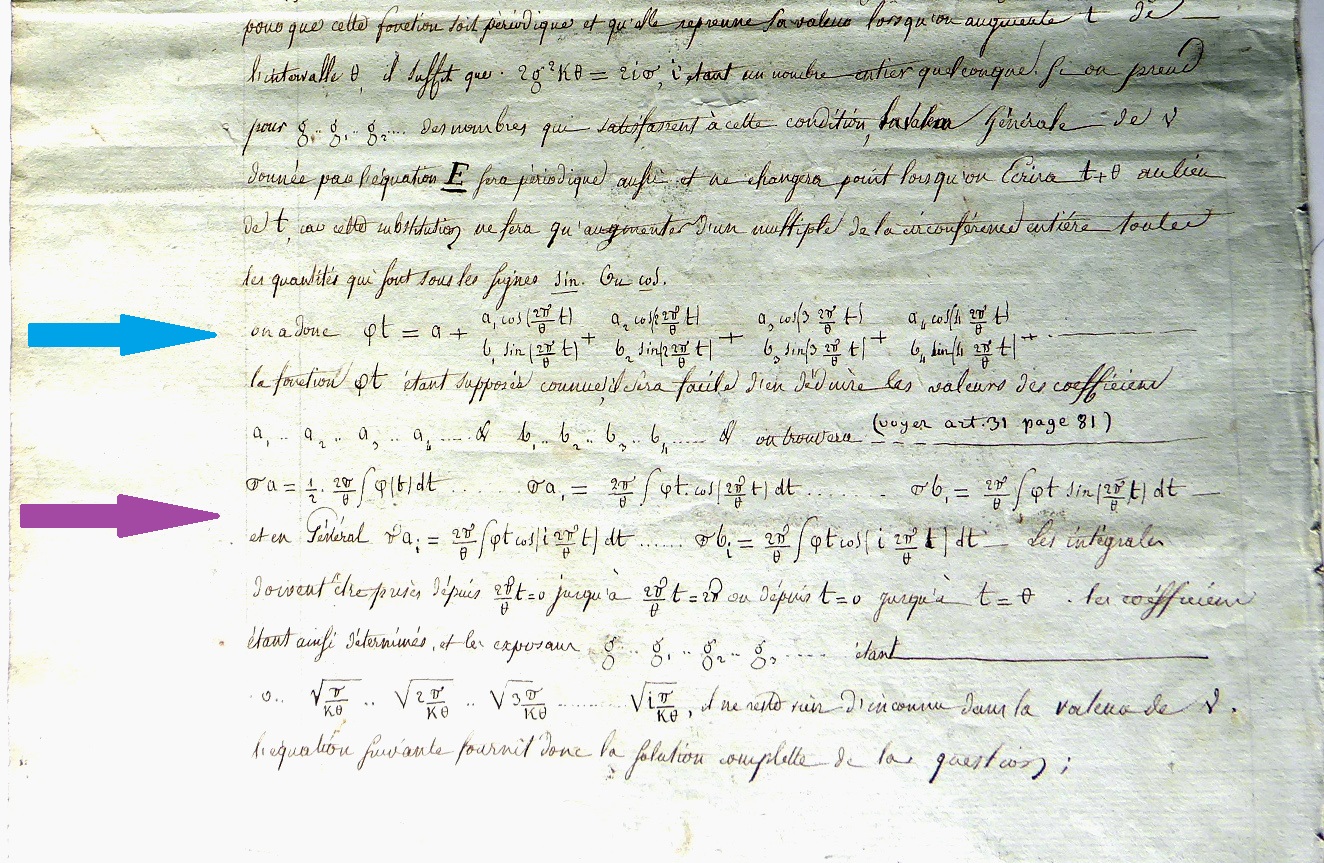 pour que cette fonction soit périodique et qu'elle reprenne sa valeur lorsqu'on augmente t de
l'intervalle θ, il suffit que 2g²Kθ = 2iπ, i étant un nombre entier quelconque. Si on prend
pour g.. g₁.. g₂.... des nombres qui satisfassent à cette condition, la valeur générale de v
donnée par l'équation E sera périodique aussi et ne changera point lorsqu'on écrira t+θ au lieu
de t, car cette substitution ne fera qu'augmenter d'un multiple de la circonférence entière toutes
les quantités qui sont sous les signes sin. ou cos.
on a donc φt = a + a₁ cos(2π/θ t) + a₂ cos(2 2π/θ t) + a₃ cos(3 2π/θ t) + a₄ cos(4 2π/θ t)
b₁ sin(2π/θ t) + b₂ sin(2 2π/θ t) + b₃ sin(3 2π/θ t) + b₄ sin(4 2π/θ t) + ...
la fonction φt étant supposée connue, il sera facile d'en déduire les valeurs des coefficiens
a₁.. a₂.. a₃.. a₄..... & b₁.. b₂.. b₃.. b₄...... & on trouvera (voyer art. 31 page 81)
πa = 1/2 . 2π/θ ∫ φ(t) dt ...... πa₁ = 2π/θ ∫ φt. cos(2π/θ t) dt ....... πb₁ = 2π/θ ∫ φt sin(2π/θ t) dt
et en Général πaᵢ = 2π/θ ∫ φt cos(i 2π/θ t) dt ...... πbᵢ = 2π/θ ∫ φt cos(i 2π/θ t) dt Les intégrales
doivent être prises depuis 2π/θ t=0 jusqu'à 2π/θ t=2π ou depuis t=0 jusqu'à t=θ. les coëfficiens
étant ainsi déterminés, et les exposans g... g₁.. g₂.. g₃..... étant
0.. √π/Kθ .. √2π/Kθ .. √3π/Kθ ......... √iπ/Kθ, il ne reste rien d'inconnu dans la valeur de v.
l'equation suivante fournit donc la solution complette de la question;